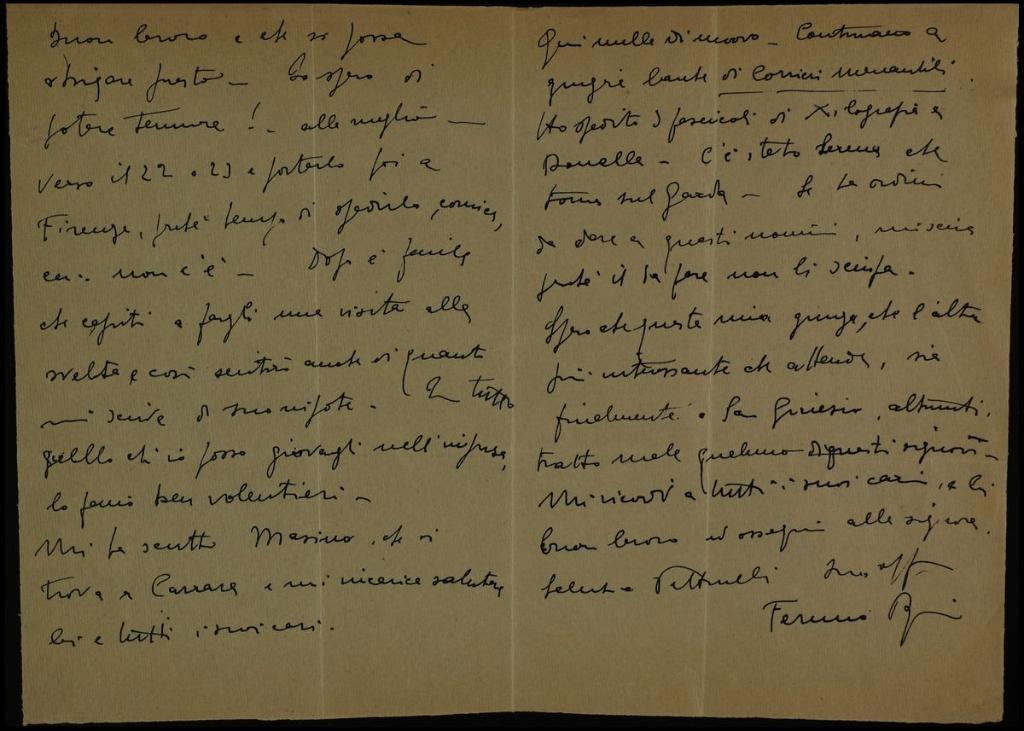 buon lavoro e che si possa
sbrigare presto - Io spero di
potere tennure ! - alla meglio -
verso il 22 o 23 e portarlo poi a
Firenze, perché tempo di spedirlo, cornice,
ecc. non c'è - Dopo è facile
che capiti a fargli una visita alla
svelta e così sentirò anche di quanto
mi scrive di suo nipote. In tutto
quello che io posso giovargli nell'impresa,
lo farò ben volentieri -
Mi ha scritto Marino, che si
trova a Carrara e mi incarica salutare
lei e tutti i suoi cari.
Qui nulla di nuovo - Continuano a
giungere buste di Cornici mercantili.
Ho spedito 3 fascicoli di Xilografia a
- C'è stato Serena che
torna sul Garda - Se ha ordini
da dare a questi uomini, mi scriva
perché il da fare non li sciupa.
Spero che questa mia giunga, che l'altra
più interessante che attende, sia
finalmente a San Ginesio, altrimenti,
tratto male qualcuno di questi signori -
Mi ricordi a tutti i suoi cari, a lei
buon lavoro ed ossequi alla signora.
Saluti a Pettinelli Suo aff